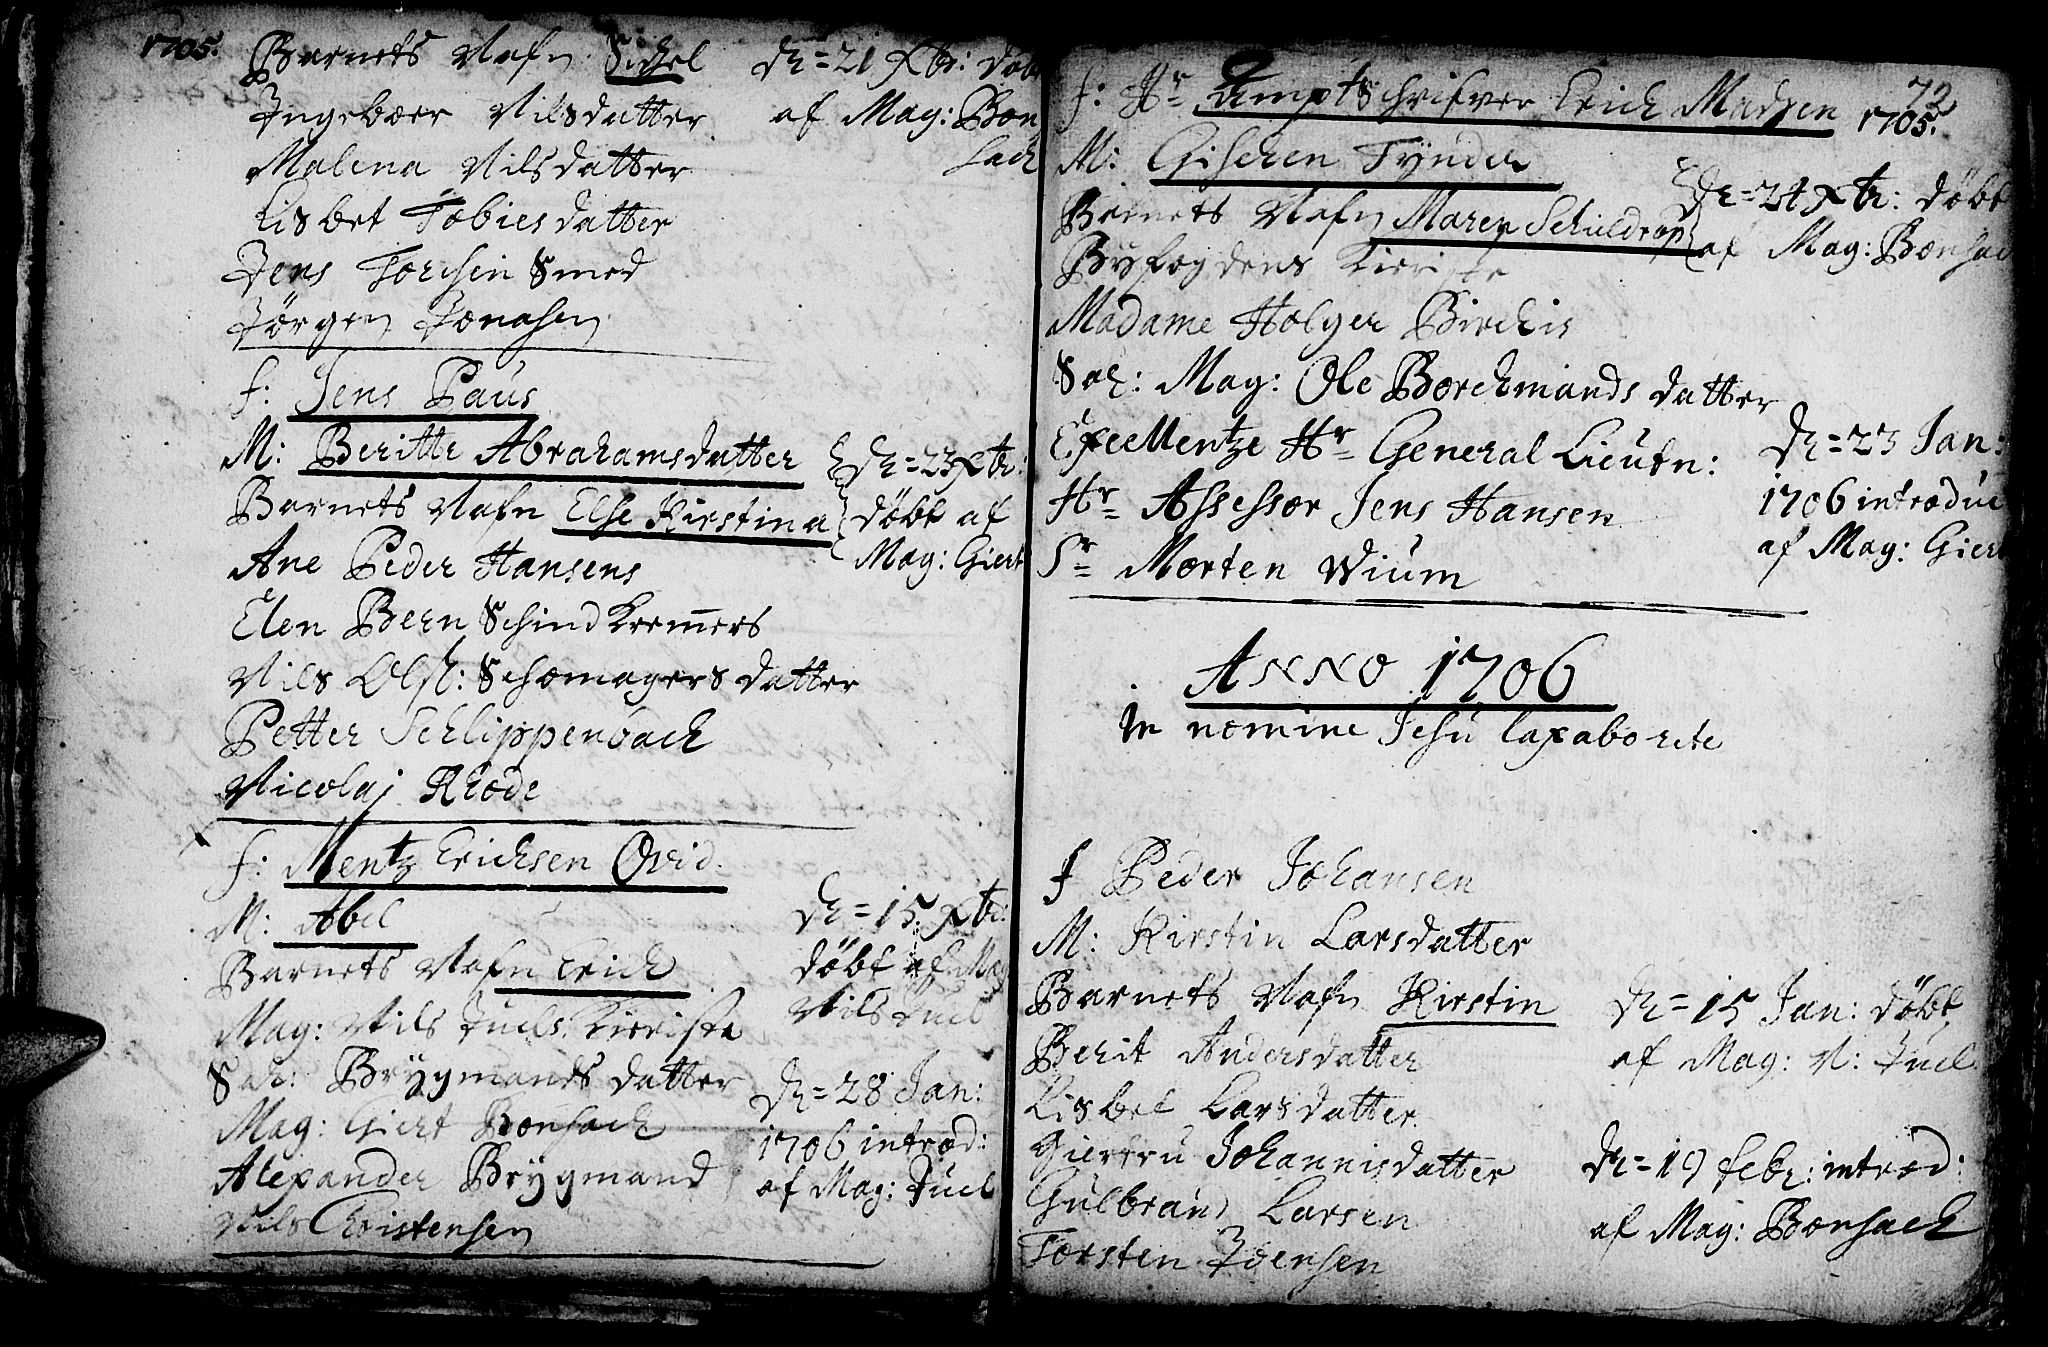 1705.
Barnets Nafn Sidsel
Ingebær Nilsdatter
Malena Nilsdatter
Lisbet Tobiesdatter
Jens Torchsin Smed
Jörgen Jonasen
d. = 21 Xbr: döbt
af Mag: Bon
sach
f: Jens Paus
M: Beritte Abrahamsdatter
Barnets Nafn Else Kirstina
Ane Peder Hansens
Elen Bern Schindkremmers
Nils Ols: Schomagers datter
Petter Schlippenbach
Nicolaj Rhode
d. = 23 Xbr:
döbt af
Mag: Giert
f: Mentz Erichsen Qvid
M: Abel
Barnets Nafn Erich
Mag: Nils Juels Kieriste
Sal: Brygmands datter
Mag: Giert Bonsach
Alexander Brygmand
Nils Christensen
d. = 15 Xbr:
döbt af Mag
Nils Juel
d. = 28 Jan:
1706 introd:
af Mag: Juel
72
1705.
f: Hr Amptschrifver Erich Madsen
M: Giseken Tynder
Barnets Nafn Maren Schuldrop
Byfogdens Kieriste
Madame Holger Birchis
Sal: Mag: Ole Borchmands datter
Excellentze Hr General Lieutn:
Hr Assessor Jens Hansen
Sr Morten Wium
d. = 24 Xbr: döbt
af Mag: Bonsac
d. = 23 Jan:
1706 introduc
af Mag: Giert
ANNO 1706
in nomine Jesu laxabo rete
f Peder Johansen
M: Kirstin Larsdatter
Barnets Nafn Kirstin
Berit Andersdatter
Lisbet Larsdatter
Giertru Johannisdatter
Gulbrand Larsen
Torsten Joensen
d. = 15 Jan: döbt
af Mag: N: Juel
d. = 19 febr: introd:
af Mag: Bonsach